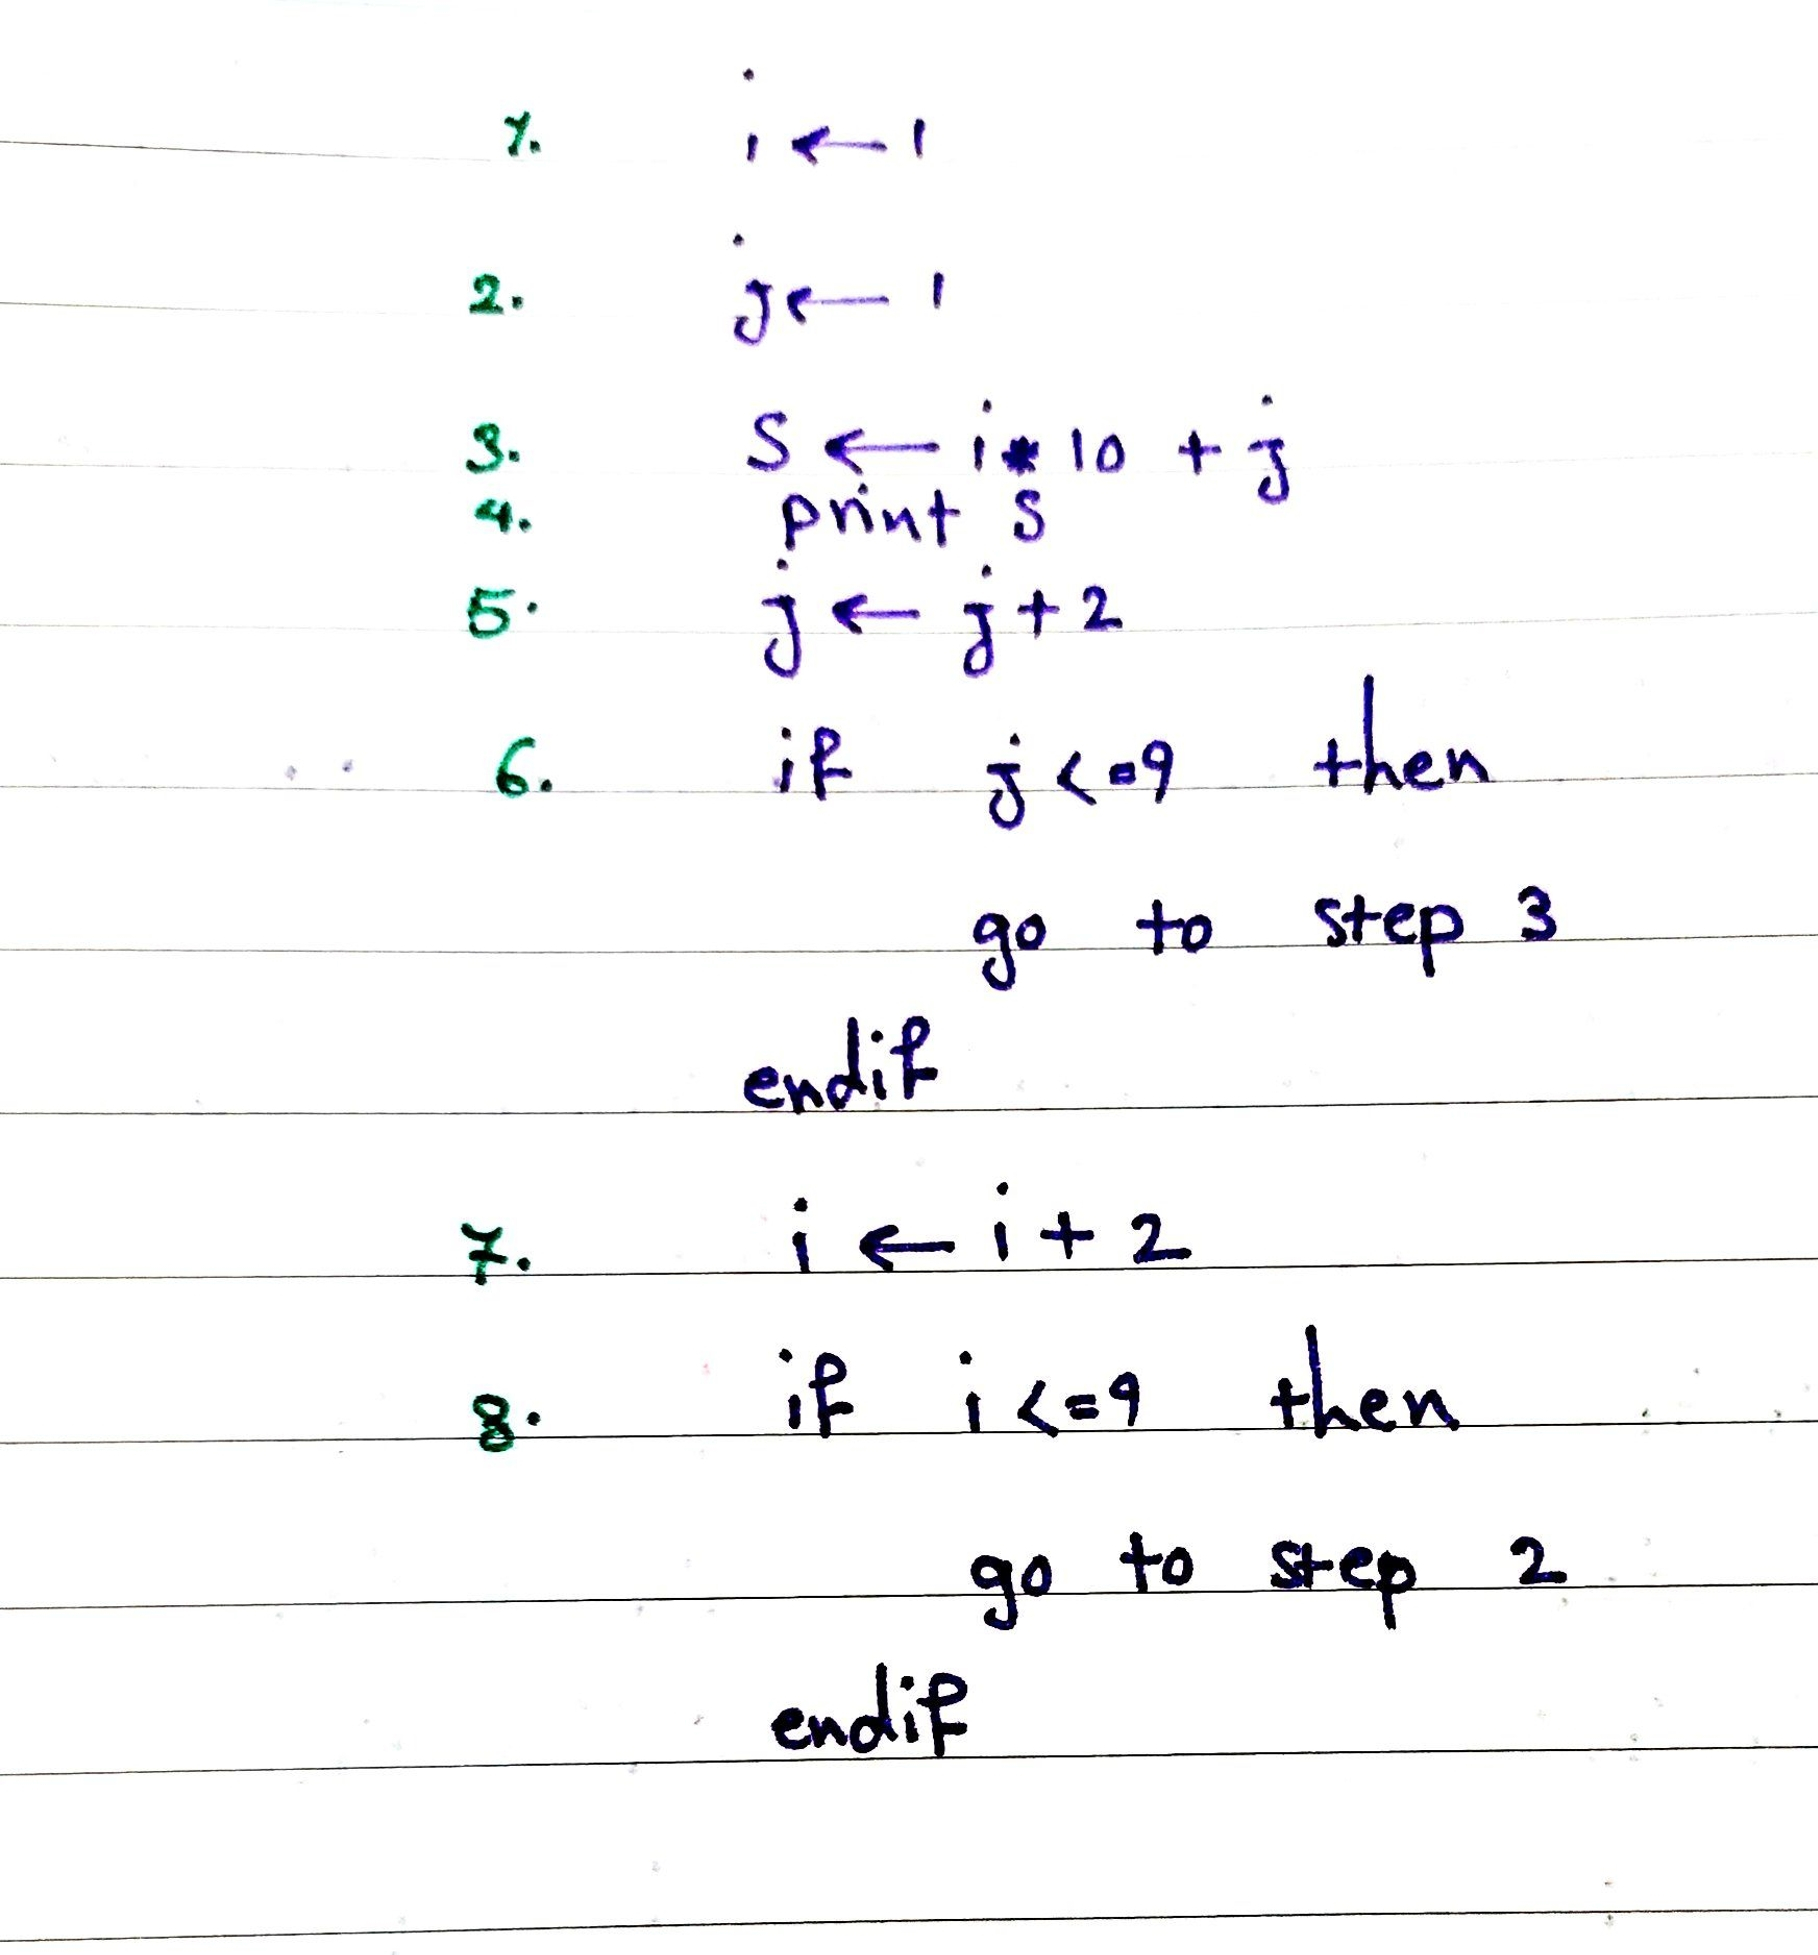 1. i ← 1
2. j ← 1
3. S ← i * 10 + j
4. print S
5. j ← j + 2
6. if j <= 9 then
go to step 3
endif
7. i ← i + 2
8. if i <= 9 then
go to step 2
endif